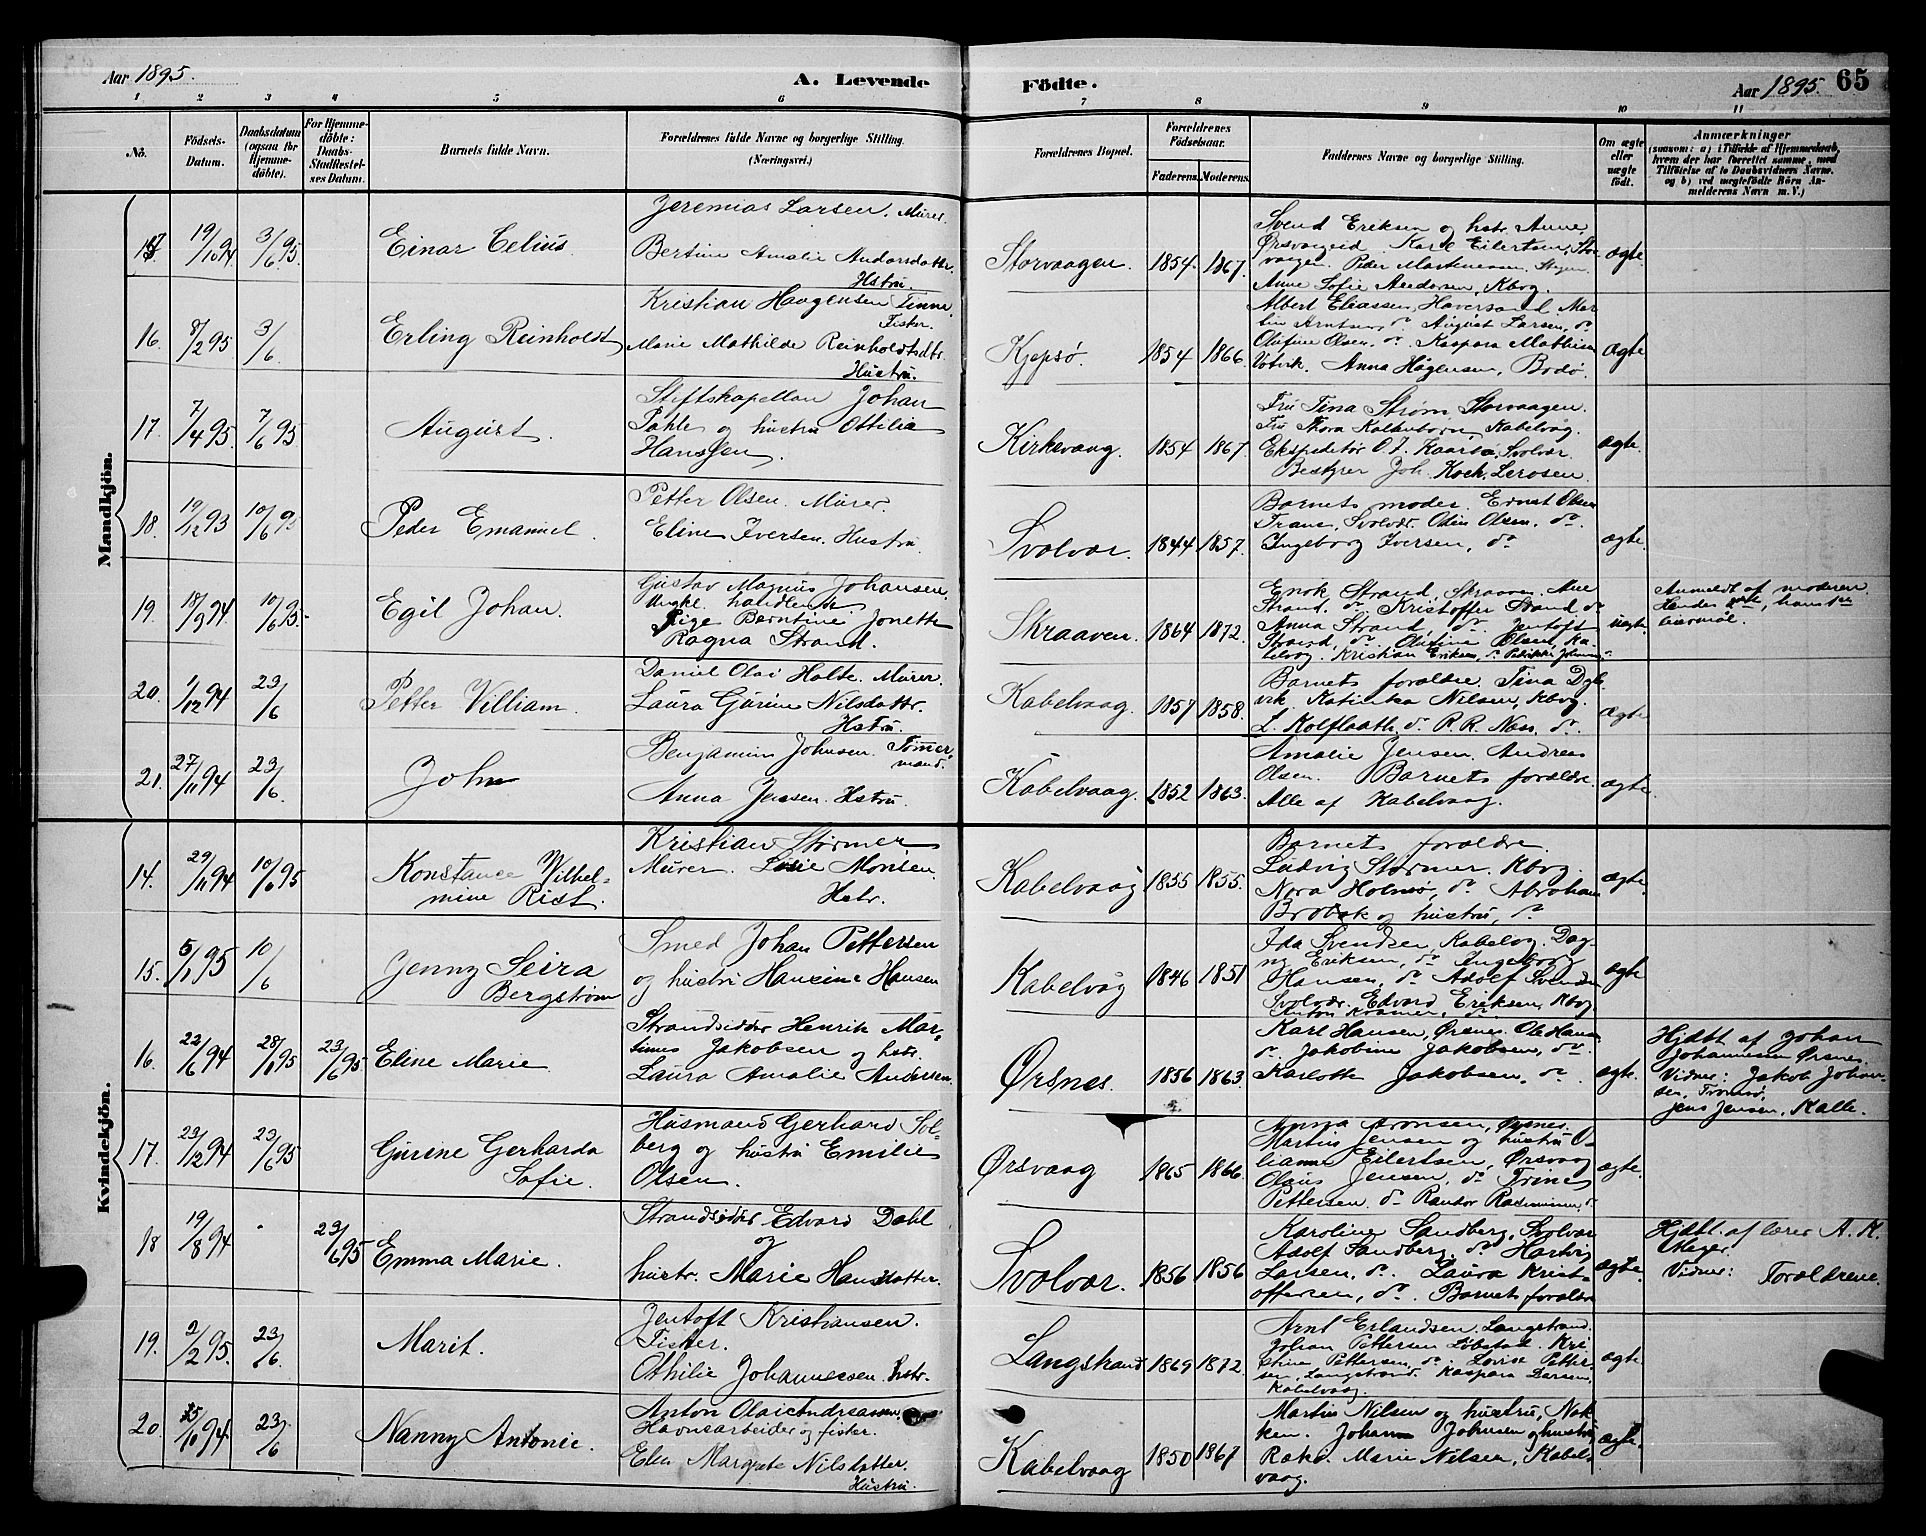 Aar 1895.
A. Levende
Födte.
Aar 1895. 65
1 2 3 4 5 6 7 8 9 10 11
No.
Födsels-
Datum.
Daabsdatum
(ogsaa for
Hjemme-
döbte).
For Hjemme-
döbte:
Daabs-
Stadfæstel-
ses Datum.
Barnets fulde Navn.
Forældrenes fulde Navne og borgerlige Stilling.
(Næringsvei.)
Forældrenes Bopæl.
Forældrenes
Födselsaar.
Faderens. Moderens.
Faddernes Navne og borgerlige Stilling.
Om ægte
eller
uægte
födt.
Anmærkninger
(saasom: a) i Tilfælde af Hjemmedaab,
hvem der har forrettet samme, med
Tilföielse af to Daabsvidners Navne.
og b) ved uægtefödte Börn An-
melderens Navn m. V.)
Mandkjön.
19/10 94 3/6 95.
Einar Celius.
Jeremias Larsen. Murer.
Bertine Amalie Andorsdatter.
Hstru.
Storvaagen. 1854. 1867.
Svend Eriksen og hstr. Anne
Ørsvaageid. Karl Eilertsen, Stor-
vaagen. Peder Martinussen
Anne Sofie Andersen, Kbog.
ægte.
16. 8/2 95 3/6.
Erling Reinholdt
Kristian Haagensen Finne
Fisker.
Marie Mathilde Reinholdtsdtr.
Hustru.
Kjepsø. 1854 1866.
Albert Eliassen, Haversand. Mar-
tin Arntsen, do. August Larsen, do.
Olufine Olsen do. Kaspara Mathisen
Anna Hågensen, Bodø.
ægte
17. 7/4 95 7/6 95
August.
Stiftskapellan Johan
Pahle og hustru Ottilia
Hanssen.
Kirkevaag. 1854 1867.
Fru Tina Strøm, Storvaagen.
Fru Thora Kaltenborn, Kabelvåg.
Ekspeditør O. J. Kaarbø, Svolvær.
Bestyrer Joh. Koch, Lerosen.
ægte.
18. 19/12 93 10/6 95
Peder Emanuel.
Petter Olsen. Murer.
Eline Iversen. Hustru.
Svolvær. 1844 1857.
Barnets moder. Ernst Olsen
Frans, Svolvær. Odin Olsen, do.
Ingeborg Iversen, do.
ægte.
19. 18/9 94. 10/6 95.
Egil Johan.
Gustav Magnus Johansen.
Ungk. handlende
Pige Berntine Jonette
Ragna Strand.
Skraaven. 1864 1872.
Enok Strand, Skraaven. Ane
Strand, do. Kristoffer Strand do.
Anna Strand, do. Jentoft
Strand, do. Olufine Olsen, Ka-
belvog. Kristian Eriksen, do.
uægte.
Anmeldt af moderen.
Hendes 1ste, hans 1ste
leiermål.
20. 1/12 94 23/6
Petter Villiam.
Daniel Olai Holte. Murer.
Laura Gurine Nilsdattr.
Hstru.
Kabelvaag. 1857 1858.
Barnets forældre. Tina Dyb-
vik. Katinka Nilsen, Kbog.
L. Kolflaath do. P. R. Næss, do.
ægte.
21. 27/11 94 23/6.
John
Benjamin Johnsen. Tømmer
mand.
Anna Jensen. Hstru.
Kabelvaag. 1852 1863.
Amalie Jensen. Andreas
Olsen. Barnets forældre.
Alle af Kabelvaag.
ægte.
Kvindekjön.
14. 29/11 94 10/6 95
Konstance Vilhel-
mine Rist.
Kristian Størmer
Murer. Monsen.
Hstr.
Kabelvaag 1855 1855.
Barnets forældre.
Ludvig Størmer. Kbog.
Nora Holmsø, do. Abraham
Brobak og hustru, do.
ægte.
15. 5/1 95 10/6
Jenny Seira
Bergstrøm
Smed Johan Pettersen
og hustru Hansine Hansen
Kabelvåg 1846 1851
Ida Svendsen, Kabelvog. Dag-
ny Eriksen, do. Ingeborg
Hansen, do. Adolf Svendsen
Svolvær. Edvard Eriksen, Kbog
Anton Kramer, do.
ægte
16. 22/6 94 28/1 95 23/6 95
Eline Marie.
Strandsidder Henrik Mar-
tinus Jakobsen og hstr.
Laura Amalie Andersen.
Ørsnes. 1856 1863.
Karl Hansen, Ørsnes. Ole Hansen
do. Jakobine Jakobsen, do.
Karlotte Jakobsen, do.
ægte.
Hjdbt af Johan
Johannesen Ørsnes.
Vidner: Jakob Johan-
sen, Tromsø,
Jens Jensen, Kalle.
17. 23/12 94 23/6 95
Gurine Gerharda
Sofie.
Husmand Gerhard Sol-
berg og hustru Emilie
Olsen.
Ørsvaag 1865 1866.
Anna Aronsen, Ørsnes.
Martin Jensen og hustru O-
lianna Eilertsen, Ørsvaag
Olaus Jensen, do. Trine
Pettersen do. Kantor Rasmussen do.
ægte.
18 19/8 94 23/6 95
Emma Marie.
Strandsidder Edvard Dahl
og
hustr. Marie Hansdatter.
Svolvær. 1856 1856
Karoline Sandberg, Svolvær
Adolf Sandberg, do. Hartvig
Larsen, do. Laura Krist-
offersen, do. Barnets forældre
ægte.
Hjdbt. af lærer A. K.
Uleger.
Vidner: Forældrene.
19. 2/2 95. 23/6.
Marit.
Jentoft Kristiansen.
Fisker.
Othilie Johannessen. Hstr.
Langstrand 1869 1872.
Arnt Erlandsen. Langstrand.
Johan Pettersen Løbstad. Kri-
stine Pettersen, do. Lovise Petter-
sen, Langstrand. Kaspara Larsen,
Kabelvaag.
ægte.
20. 15/10 94. 23/6
Nanny Antonie.
Anton Olai Andreassen.
Havnearbeider og fisker.
Elen Margrete Nilsdatter.
Hustru.
Kabelvaag 1850 1867
Martin Nilsen og hustru, Nøk-
ken. Johan Johnsen og hustru
Røke. Marie Nilsen, Kabel-
vaag.
ægte.